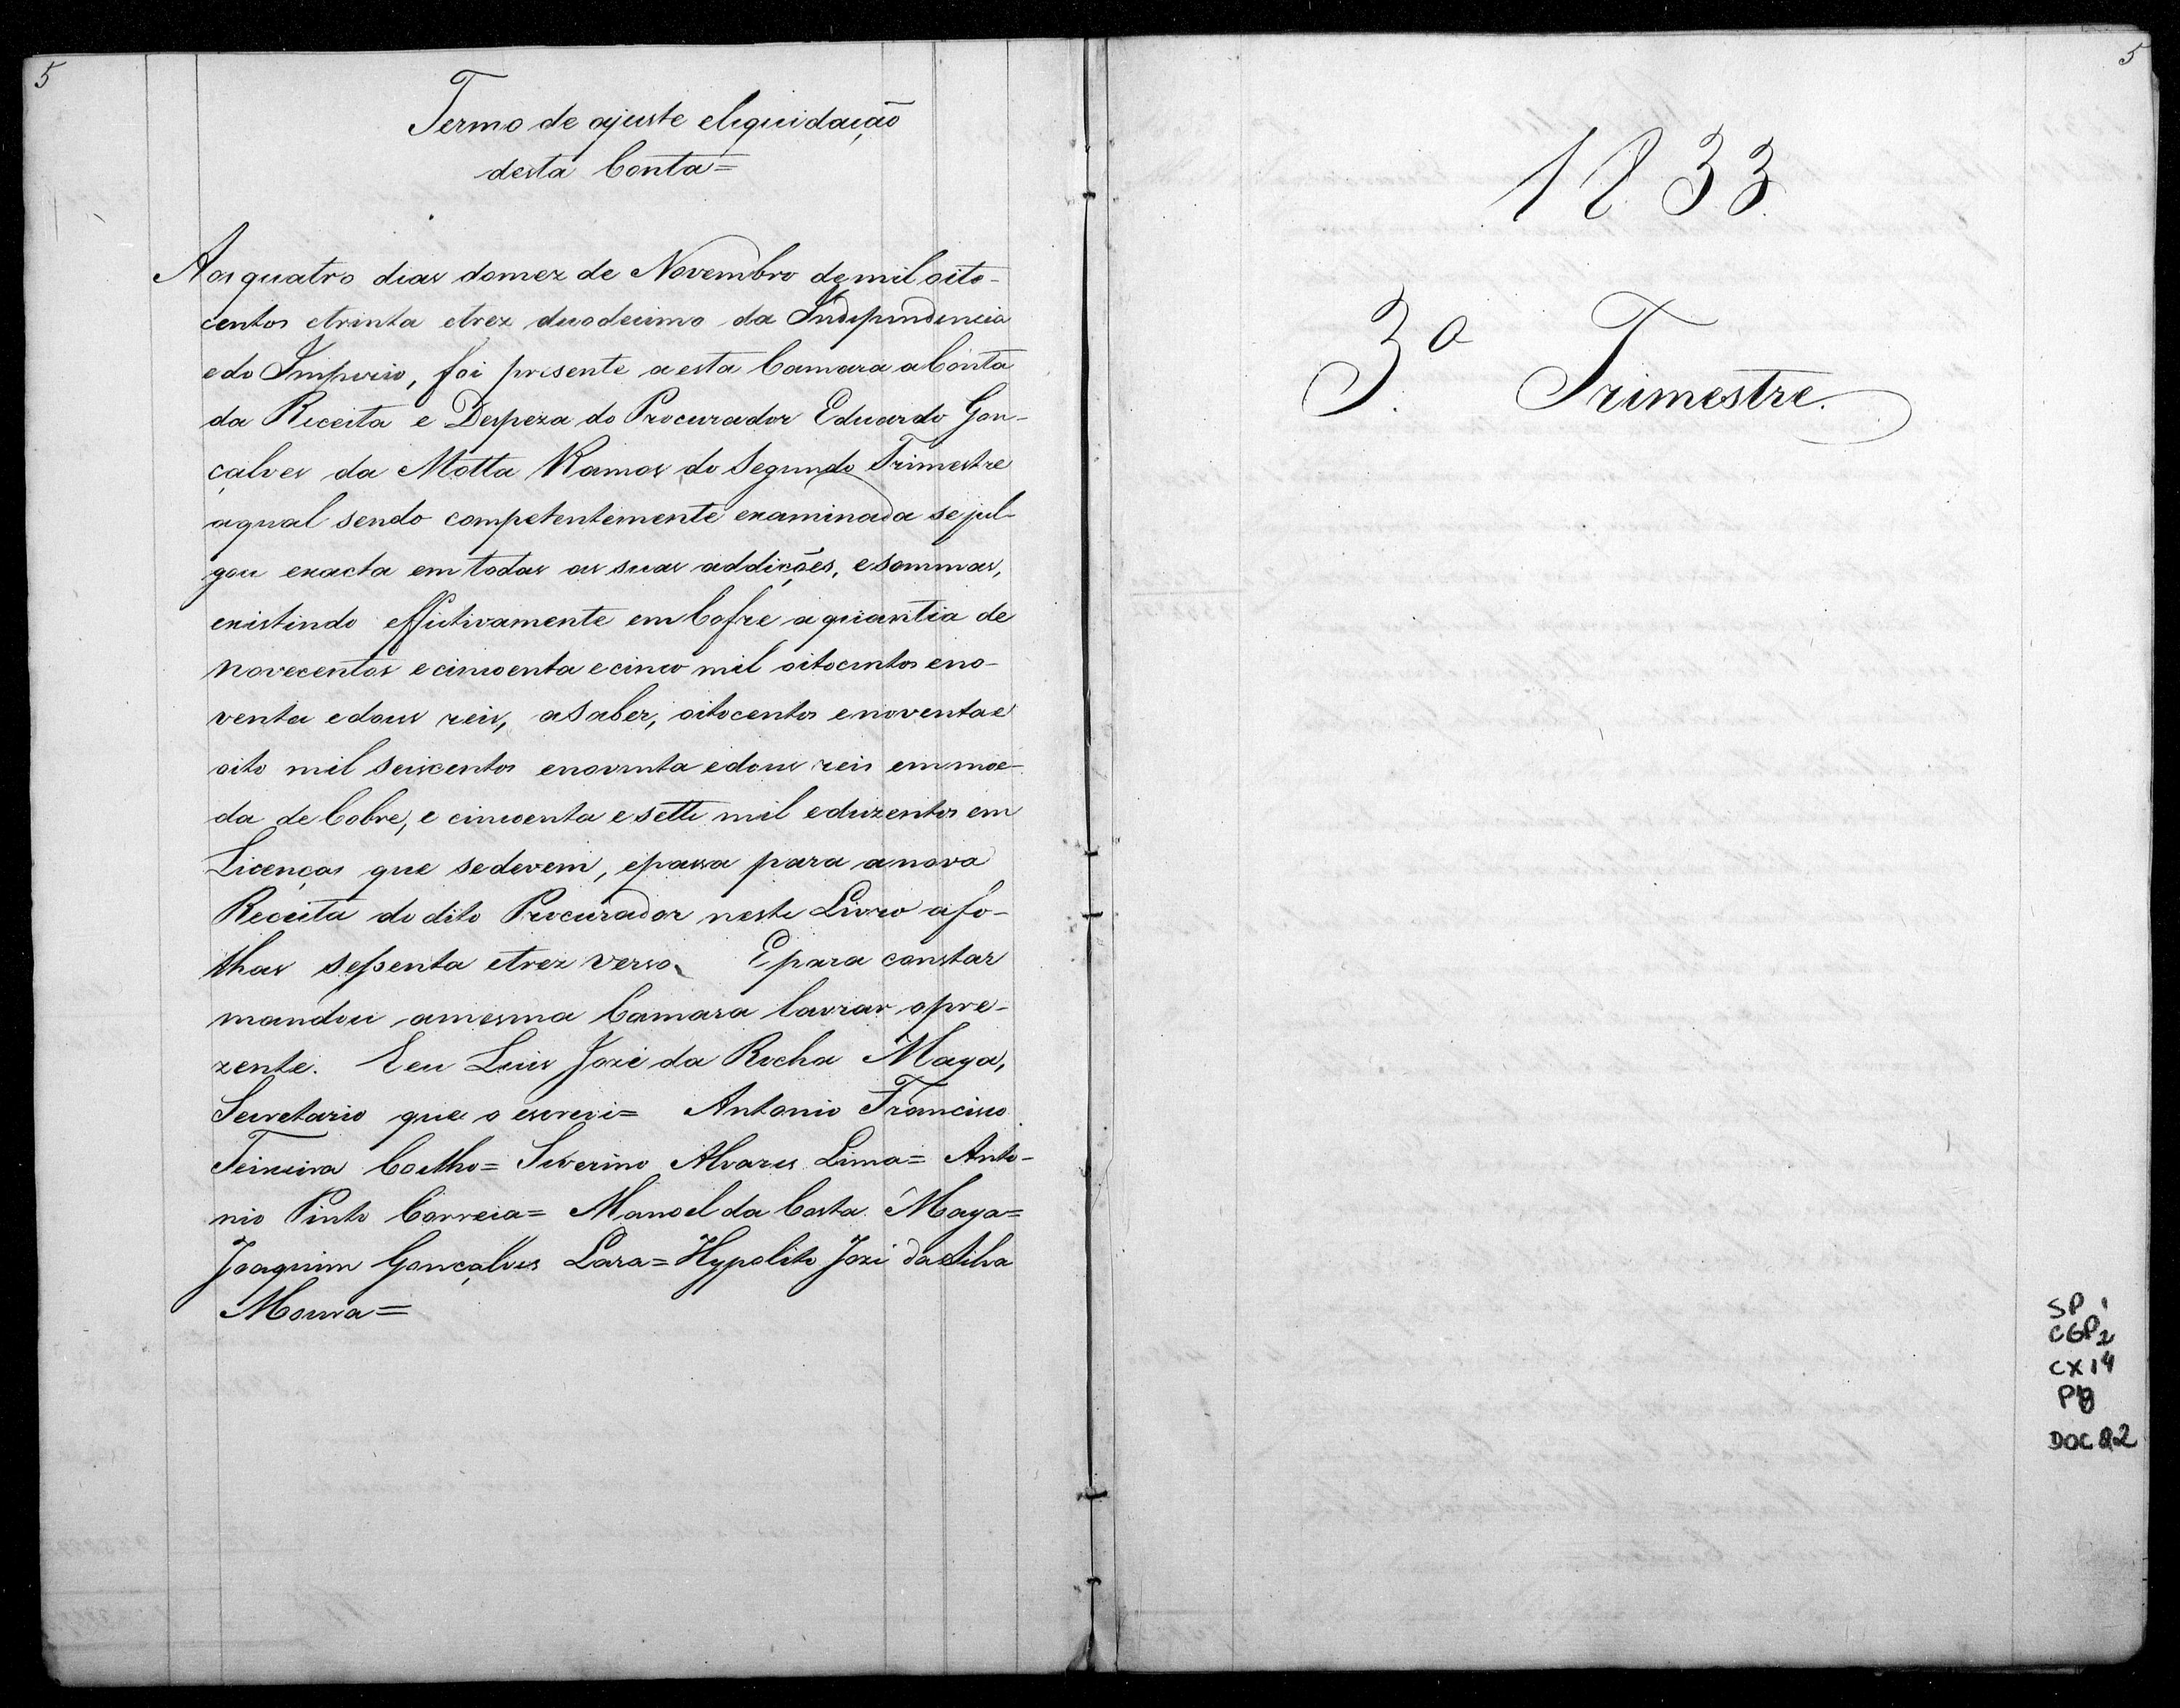 5
Termo de ajuste eliquidação
desta Conta=
Aos quatro dias domez de Novembro demil oito-
centos etrinta etrez duodecimo da Independencia
edo Imperio, foi presente a esta Camara aConta
da Receita e Despeza do Procurador Eduardo Gon-
çalves da Motta Ramos do Segundo Trimestre
aqual sendo competentemente examinada se jul-
gou exacta em todas as suas addições, esommas,
existindo effectivamente em Cofre a quantia de
novecentos ecincoenta ecinco mil oitocentos eno-
venta edous reis, aSaber, oitocentos enoventae
oito mil Seiscentos enoventa edous reis emmoe-
da de Cobre, e cincoenta esette mil eduzentos em
Licenças que sedevem, epassa para anova
Receita do dito Procurador neste Livro afo-
lhas sessenta etrez verso. Epara constar
mandou amesma Camara lavrar opre-
zente. Eeu Luis Jozé da Rocha Maya,
Secretario que o escrevi= Antonio Francisco
Teixeira Coelho= Severino Alvares Lima= Anto-
nio Pinto Correia= Manoel da Costa Maya=
Joaquim Gonçalves Lara= Hypolito Jozé da Silva
Moura=
5
1833
3º Trimestre.
SP 1
CGP2
CX14
P18
DOC 22